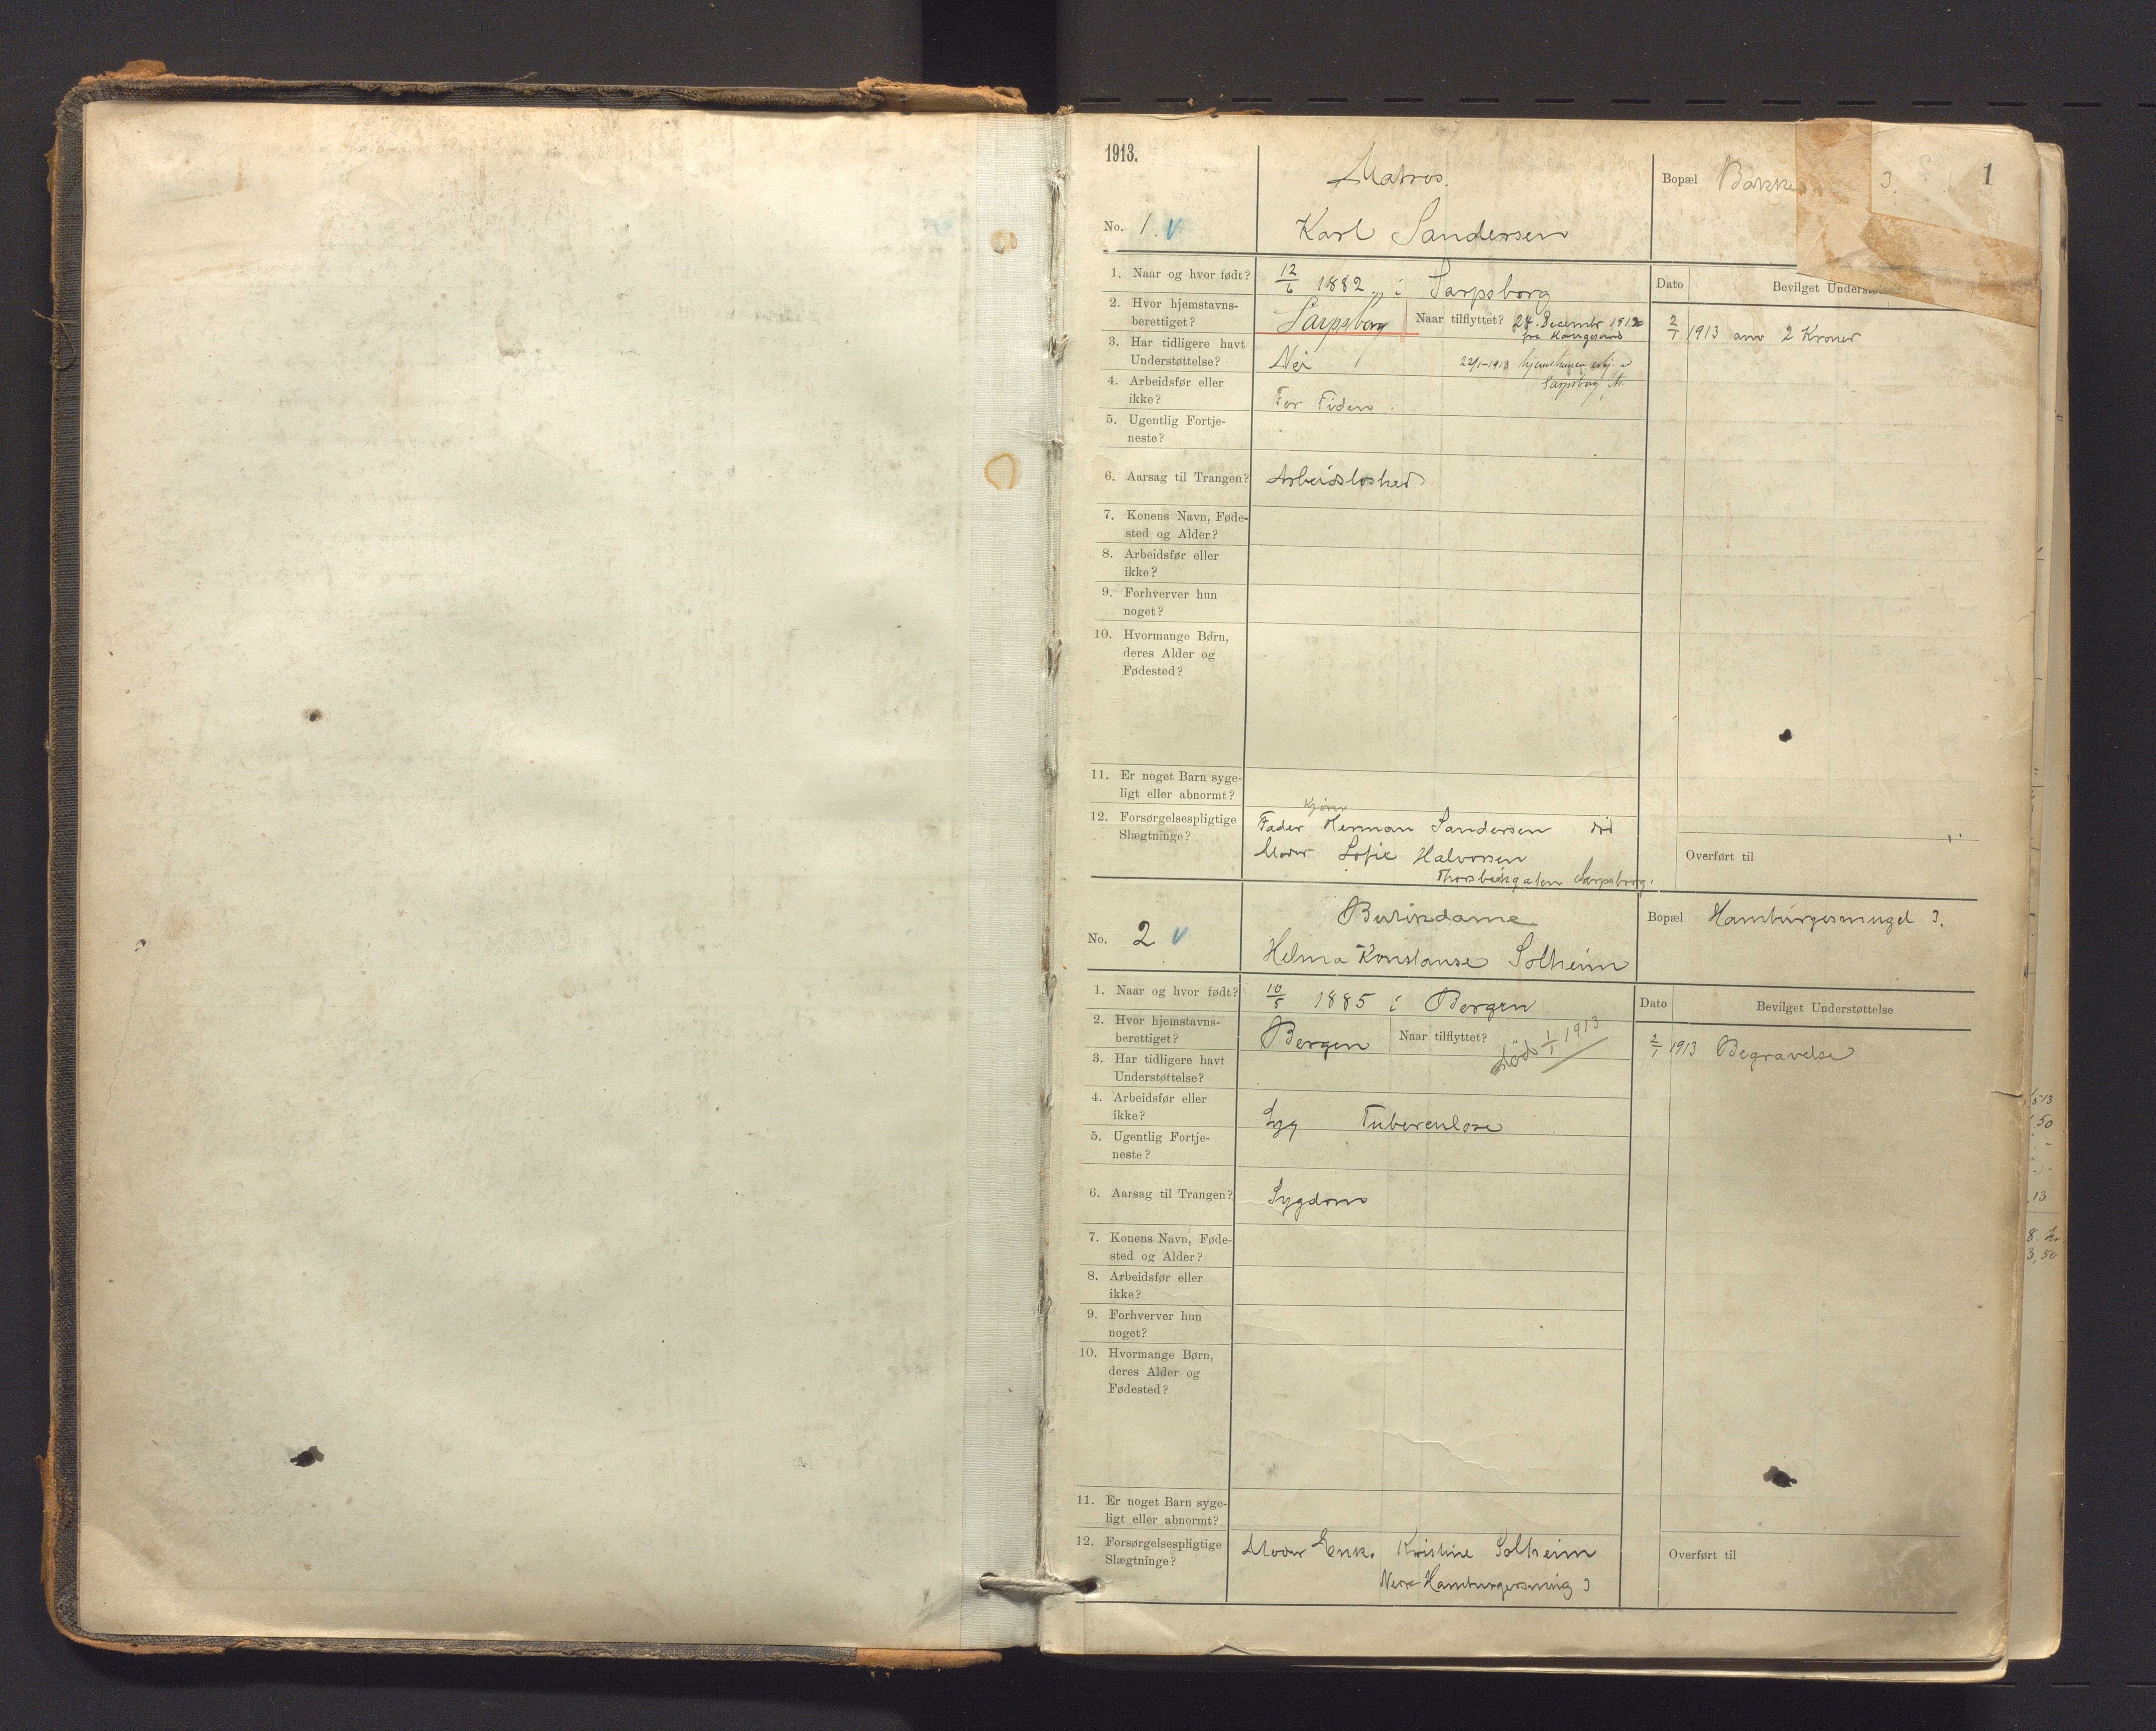 1913.
Matros.
Bopæl Bakke 3.
1
No. 1. v
Karl Sandersen
1. Naar og hvor født? 12/6 1882. i Sarpsborg
Dato
Bevilget Underst
2. Hvor hjemstavns-
berettiget?
Sarpsborg
Naar tilflyttet? 24. Decembr 1912
fra
2/1 1913 anv 2 Kroner
3. Har tidligere havt
Understøttelse?
Nei
22/1-1913
Sarpsborg
4. Arbeidsfør eller
ikke?
For Tiden.
5. Ugentlig Fortje-
neste?
6. Aarsag til Trangen? Arbeidsløshed
7. Konens Navn, Føde-
sted og Alder?
8. Arbeidsfør eller
ikke?
9. Forhverver hun
noget?
10. Hvormange Børn,
deres Alder og
Fødested?
11. Er noget Barn syge-
ligt eller abnormt?
12. Forsørgelsespligtige
Slægtninge?
Kjører
Fader Herman Sandersen død
Moder Sofie Halvorsen
Sarpsborg.
Overført til
No. 2 v
Buxindame
Helma Konstanse Solheim
Bopæl Hamburgersmuget 3.
1. Naar og hvor født? 10/5 1885 i Bergen
Dato
Bevilget Understøttelse
2. Hvor hjemstavns-
berettiget?
Bergen
Naar tilflyttet?
død 1/1 1913
2/1 1913 Begravelse
3. Har tidligere havt
Understøttelse?
4. Arbeidsfør eller
ikke?
Syg Tuberculose
5. Ugentlig Fortje-
neste?
6. Aarsag til Trangen? Sygdom
7. Konens Navn, Føde-
sted og Alder?
8. Arbeidsfør eller
ikke?
9. Forhverver hun
noget?
10. Hvormange Børn,
deres Alder og
Fødested?
11. Er noget Barn syge-
ligt eller abnormt?
12. Forsørgelsespligtige
Slægtninge?
Moder Enk. Kristine Solheim
Hamburgersmug 3
Overført til